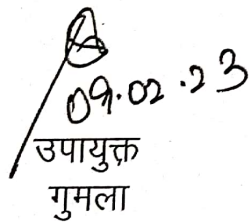 09.02.23
उपायुक्त
गुमला